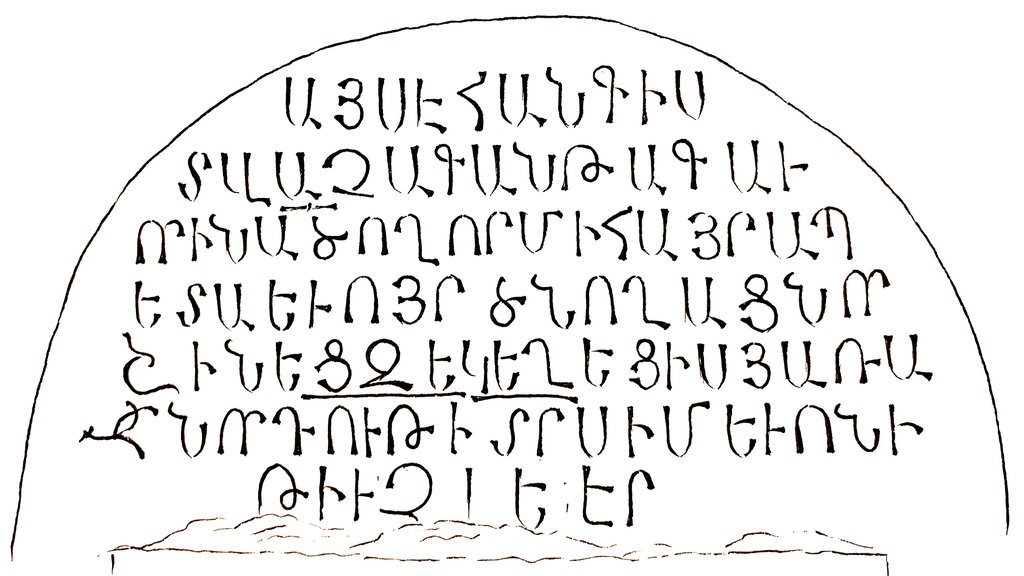 ԱՅՍԷՀԱՆԳԻՍ
ՏԱԼԱԶԱԳԱՆԹԱԳԱՒ
ՈՐԻՆԱԾՈՂՈՐՄԻՀԱՅՐԱՊ
ԵՏԱԵՒՈՅՐ ԾՆՈՂԱՑՆՈՐ
ՇԻՆԵՑԶԵԿԵՂԵՑԻՍՅԱՌԱ
ՋՆՈՐԴՈՒԹԻ ՏՐՍԻՄԵՒՈՆԻ
ԹԻՒ ԷՐ